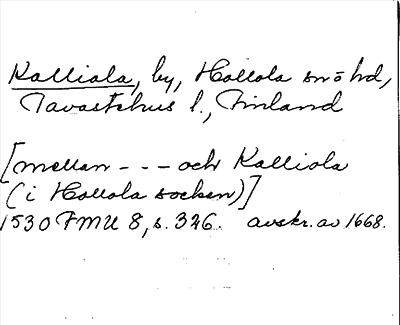 Kalliola, by, Hollola snö hd,
Tavastehus l., Finland
[mellan - - - och Kalliola
(i Hollola socken)]
1530 FMU 8, s. 326. avskr. av 1668.